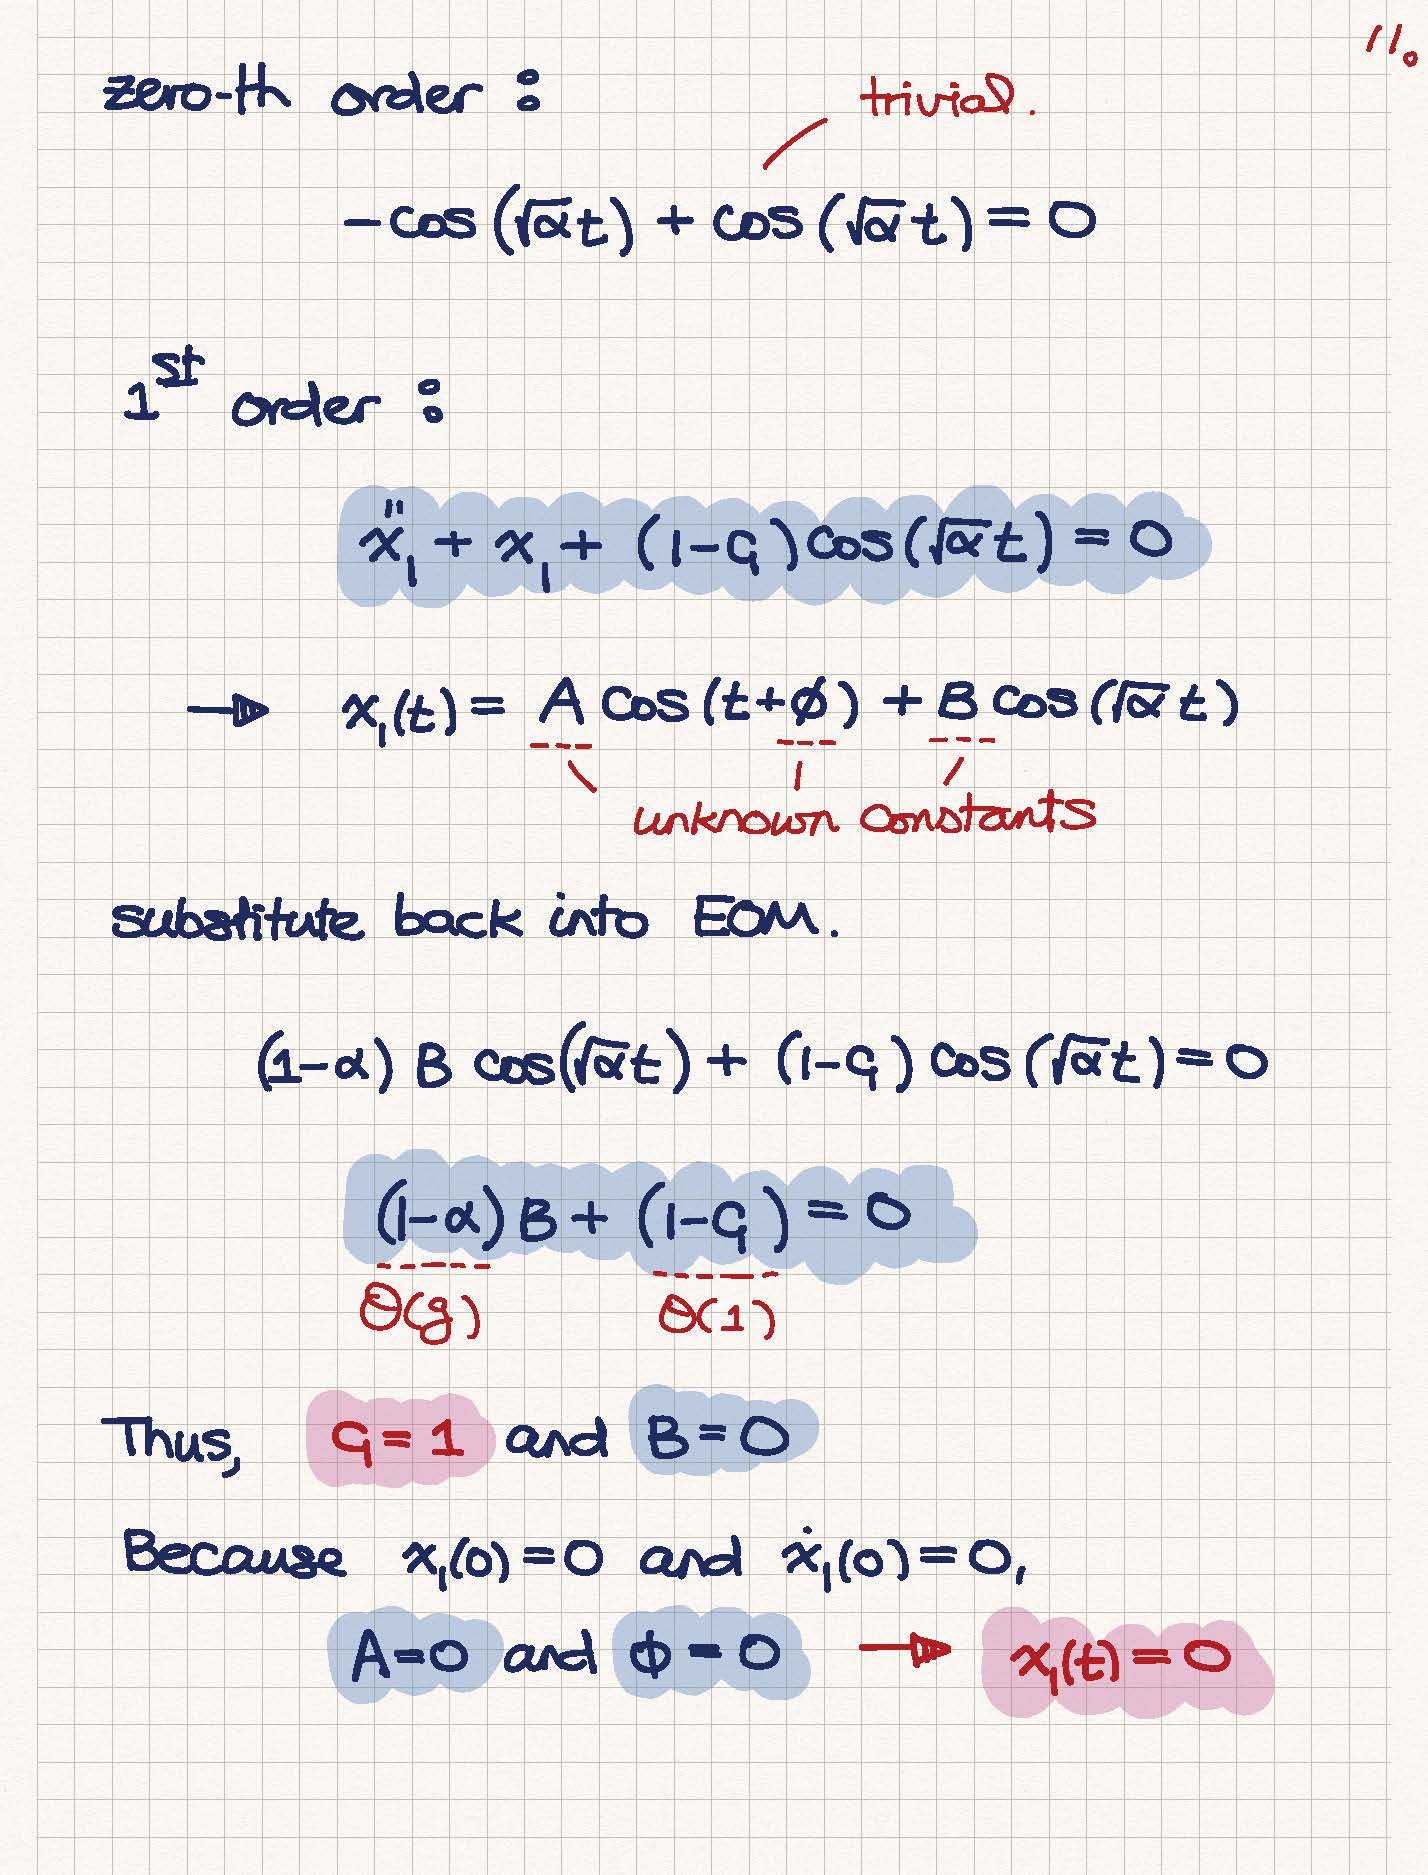 11.
zero-th order :
trivial.
-cos(√α t) + cos(√α t) = 0
1st order :
ẍ₁ + x₁ + (1-C₁)cos(√α t) = 0
→ x₁(t) = A cos(t+ϕ) + B cos(√α t)
unknown constants
substitute back into EOM.
(1-α) B cos(√α t) + (1-C₁) cos(√α t) = 0
(1-α) B + (1-C₁) = 0
O(g) O(1)
Thus, C₁ = 1 and B = 0
Because x₁(0) = 0 and ẋ₁(0) = 0,
A = 0 and ϕ = 0 → x₁(t) = 0